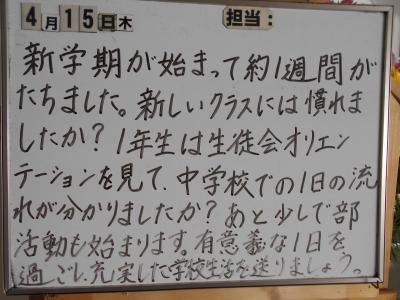 4月15日木 担当:
新学期が始まって約1週間が
たちました。新しいクラスには慣れま
したか?1年生は生徒会オリエン
テーションを見て、中学校での1日の流
れが分かりましたか?あと少しで部
活動も始まります。有意義な1日を
過ごし、充実した学校生活を送りましょう。